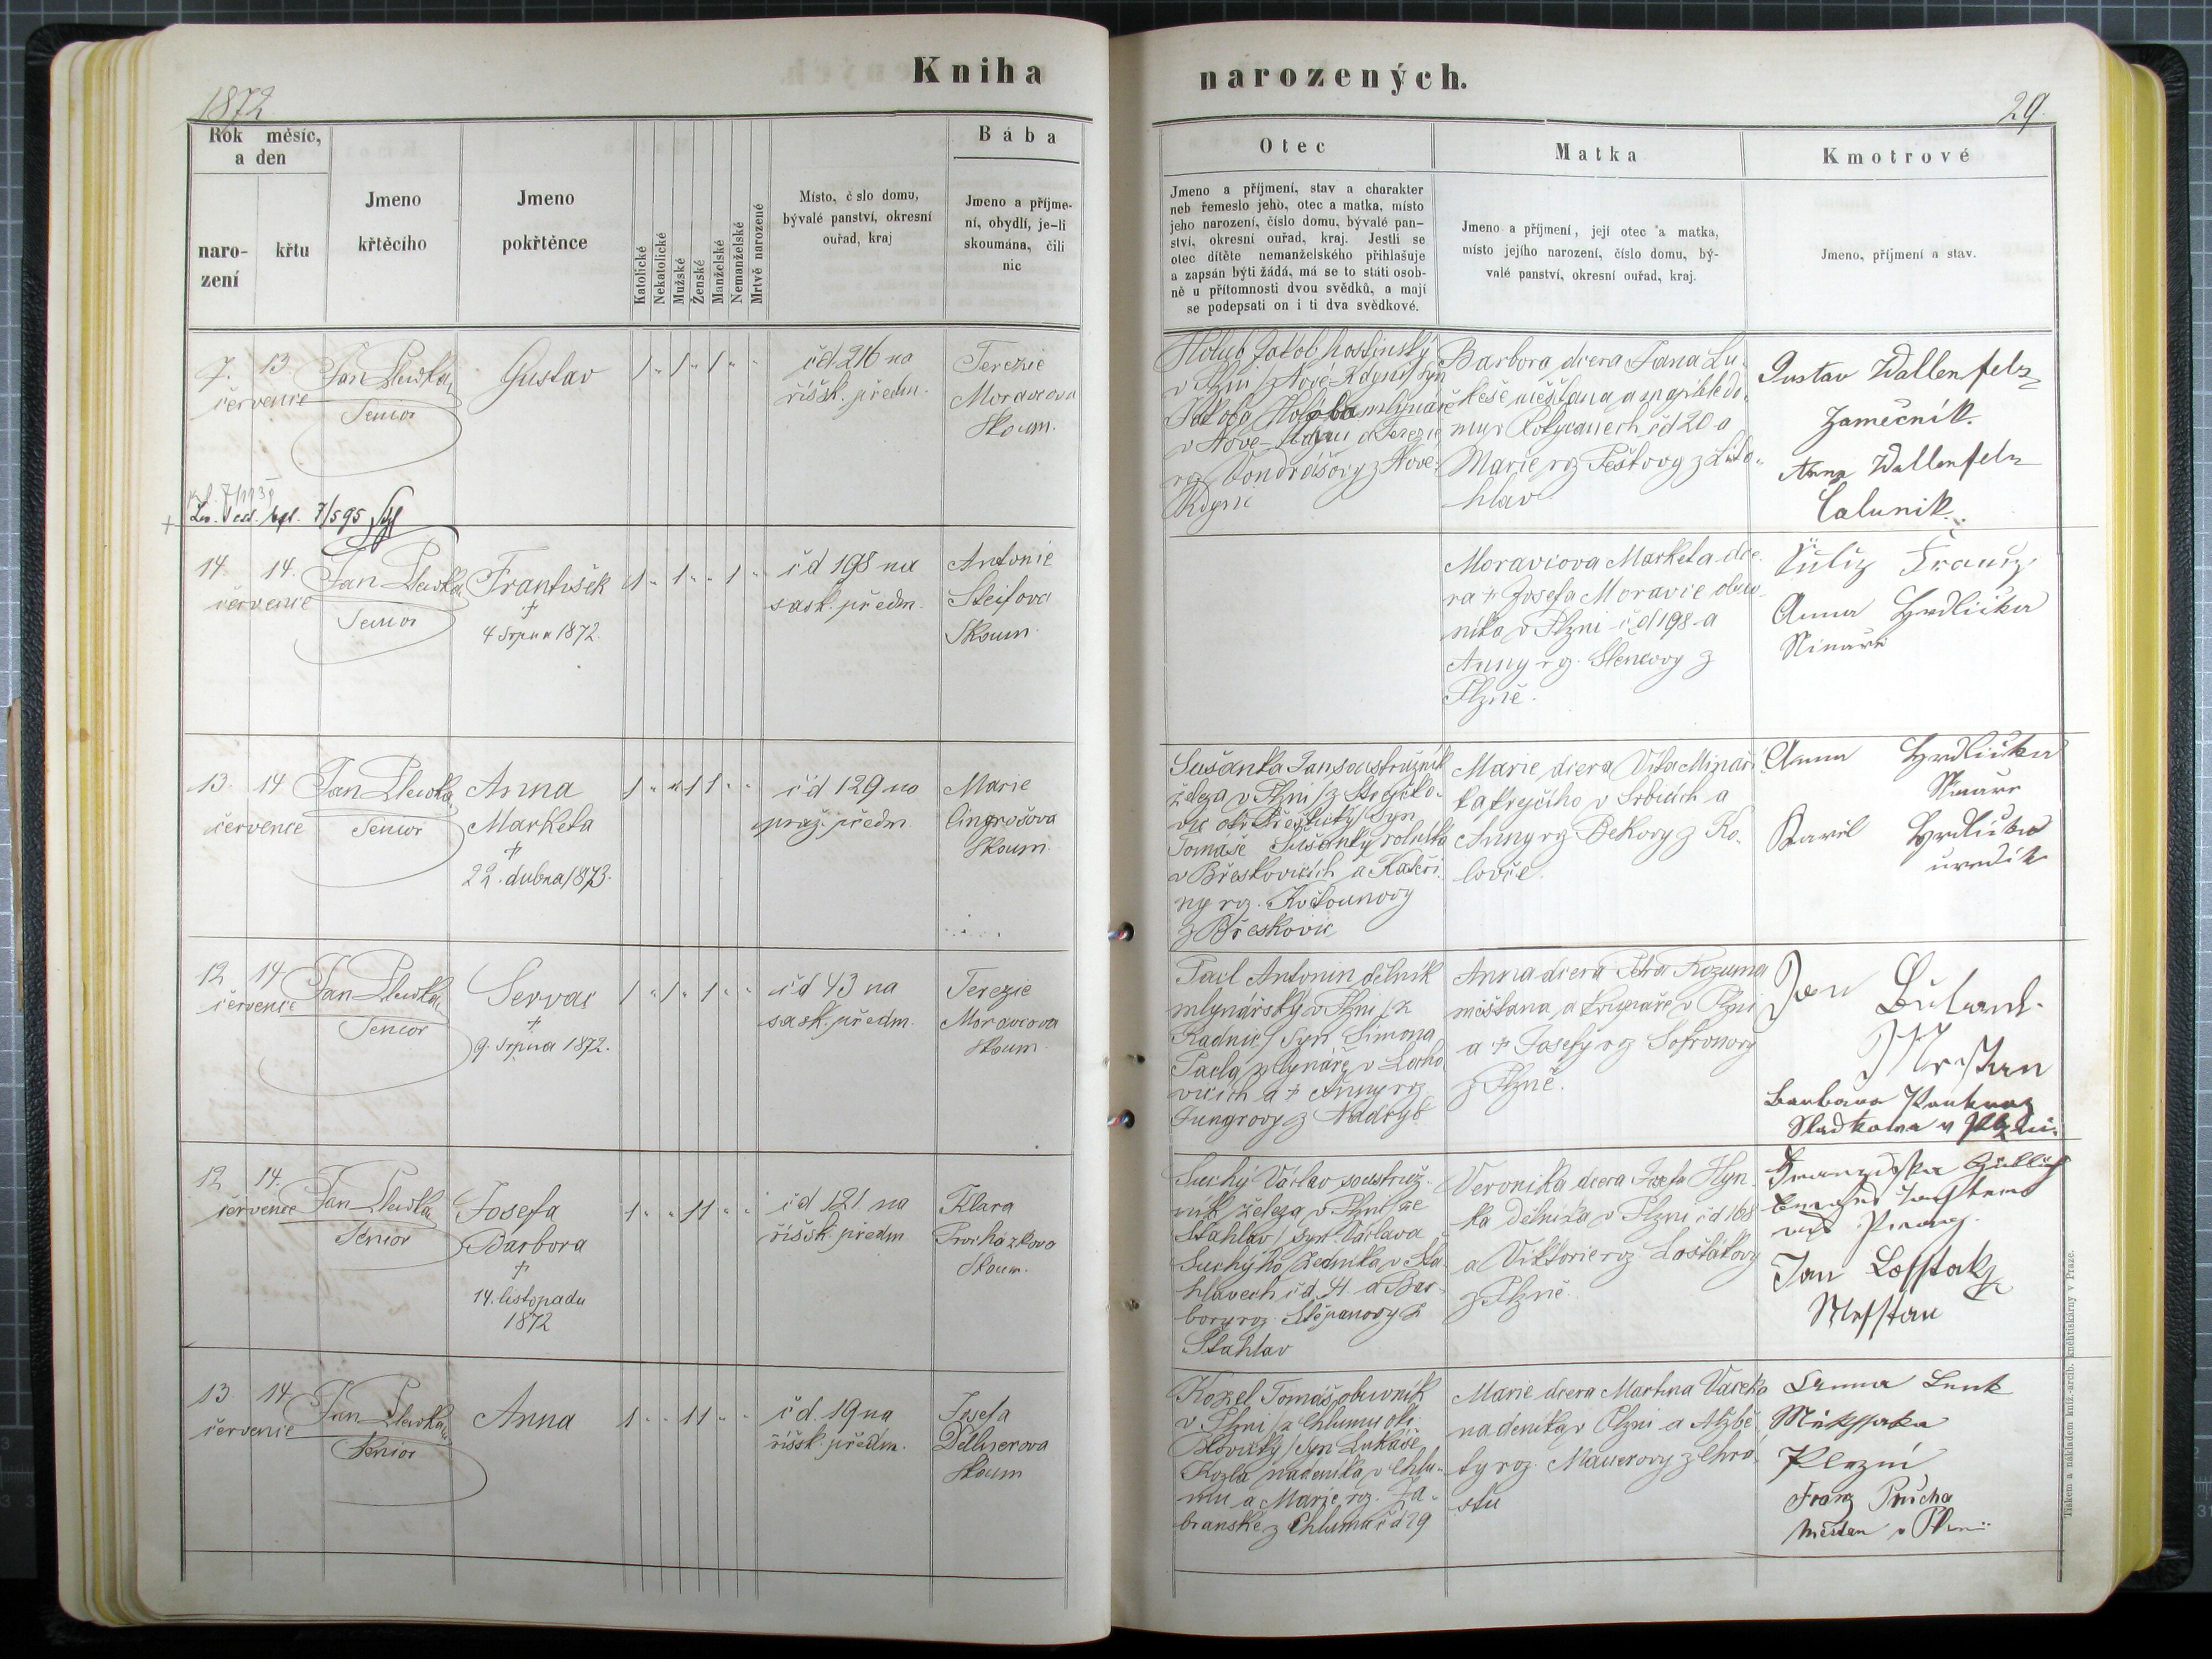 Kniha
narozených.
1872
29.
Rok měsíc,
a den
naro-
zení
křtu
Jmeno
křtěcího
Jmeno
pokřtěnce
Katolické
Nekatolické
Mužské
Ženské
Manželské
Nemanželské
Mrtvě narozené
Místo, č slo domu,
bývalé panství, okresní
ouřad, kraj
Bába
Jmeno a příjme-
ní, obydlí, je-li
skoumána, čili
nic
Otec
Jmeno a příjmení, stav a charakter
neb řemeslo jeho, otec a matka, místo
jeho narození, číslo domu, bývalé pan-
ství, okresní ouřad, kraj. Jestli se
otec dítěte nemanželského přihlašuje
a zapsán býti žádá, má se to státi osob-
ně u přítomnosti dvou svědků, a mají
se podepsati on i ti dva svědkové.
Matka
Jmeno a příjmení, její otec a matka,
místo jejího narození, číslo domu, bý-
valé panství, okresní ouřad, kraj.
Kmotrové
Jmeno, příjmení a stav.
7. 13
července
Senior
Gustav
1 " 1 " 1 " "
čd 216 na
říšsk. předm.
Terezie
Moravcova
Skoum.
Holub Jakob hostinský
v Plzni /z Nové-Kdyně/ syn
Jakoba Holuba mlynáře
v Nové-Kdyni a Terezie
rz Vondrášovy z Nové
Kdyni
Barbora dcera Jana Lu-
keše měšťana a majitele do-
mu v Rokycanech čd 20 a
Marie rz Peštovy z Lito-
hlav
Gustav Wallenfels
Zamečník.
Anna Wallenfels
Calunik.
7/595
14 14.
července
Senior
František
†
4 srpna 1872.
1 " 1 " " 1 "
čd 198 na
sask. předm.
Antonie
Steifova
Skoum.
Moravcova Marketa dce-
ra † Josefa Moravce obuv-
níka v Plzni čd 198 a
Anny rz. Stencovy z
Plzně.
Anna Hrdlička
13. 14
července
Senior
Anna
Marketa
†
22. dubna 1873.
1 " " 1 1 " "
čd 129 na
praž. předm.
Marie
Cingrošova
Skoum.
Sušanka Jan soustružník
železa v Plzni /z
Tomáše Sušanky rolníka
v Břeskovicích a Kateři-
ny rz. Kočounovy
z Břeskovic
Marie dcera Víta Minaří-
ka krejčího v Srbicích a
Anny rz Bekovy z Ko-
lovče.
Anna Hrdlička
Karel Hrdlička
12 14
července
Senior
Servac
†
9. srpna 1872.
1 " 1 " 1 " "
čd 43 na
sask. předm.
Terezie
Moravcova
Skoum.
Pacl Antonin dělník
mlynářský v Plzni /z
Radnic/ syn Šimona
Pacla mlynáře v Locho-
vicích a † Anny rz
Jungrovy z Nadryb
Anna dcera Petra Rozuma
měšťana a krupaře v Plzni
a † Josefy rz Sofronovy
z Plzně.
Jan
Barbara
v Plzni.
12 14.
července
Senior
Josefa
Barbora
†
14. listopadu
1872
1 " " 1 1 " "
čd 121 na
říšsk. předm
Klara
Procházkova
Skoum.
Suchý Václav soustruž-
ník železa v Plzni /ze
Štahlav/ syn Václava
Suchýho zedníka v Šta-
hlavech čd 4. a Bar-
bory rz. Štěpanovy z
Štahlav
Veronika dcera Josefa Hyn-
ka dělníka v Plzni čd 168
a Viktorie rz Lošťákovy
z Plzně.
Jan Losstak
Messtan
13 14
července
Senior
Anna
1 " " 1 1 " "
čd. 19 na
říšsk. předm.
Josefa
Dellnerova
Skoum
Kozel Tomáš obuvník
v Plzni /z Chlumu okr.
Blovický/ syn Lukáše
Kozla nadeníka v Chlu-
mu a Marie rz. Za-
branské z Chlumu čd 29
Marie dcera Martina Vacka
nadeníka v Plzni a Alžbě-
ty roz. Mauerovy z Chrá-
stu
Anna Lenk
Plzni
Franz Průcha
Měštan v Plzni
Tiskem a nákladem kníž.-arcib. knihtiskárny v Praze.